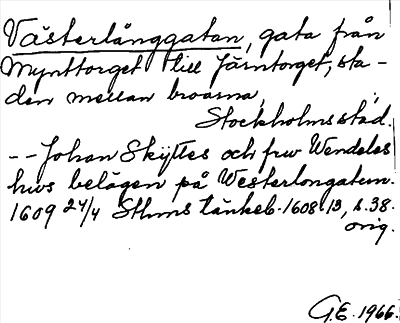 Västerlånggatan, gata från
Mynttorget till Järntorget, sta-
den mellan broarna,
Stockholms stad.
-- Johan Skyttes och frw Wendelas
hws belägen på Westerlongatun.
1609 24/4 Sthms tänkeb. 1608-13, s. 38.
orig.
G.E. 1966.